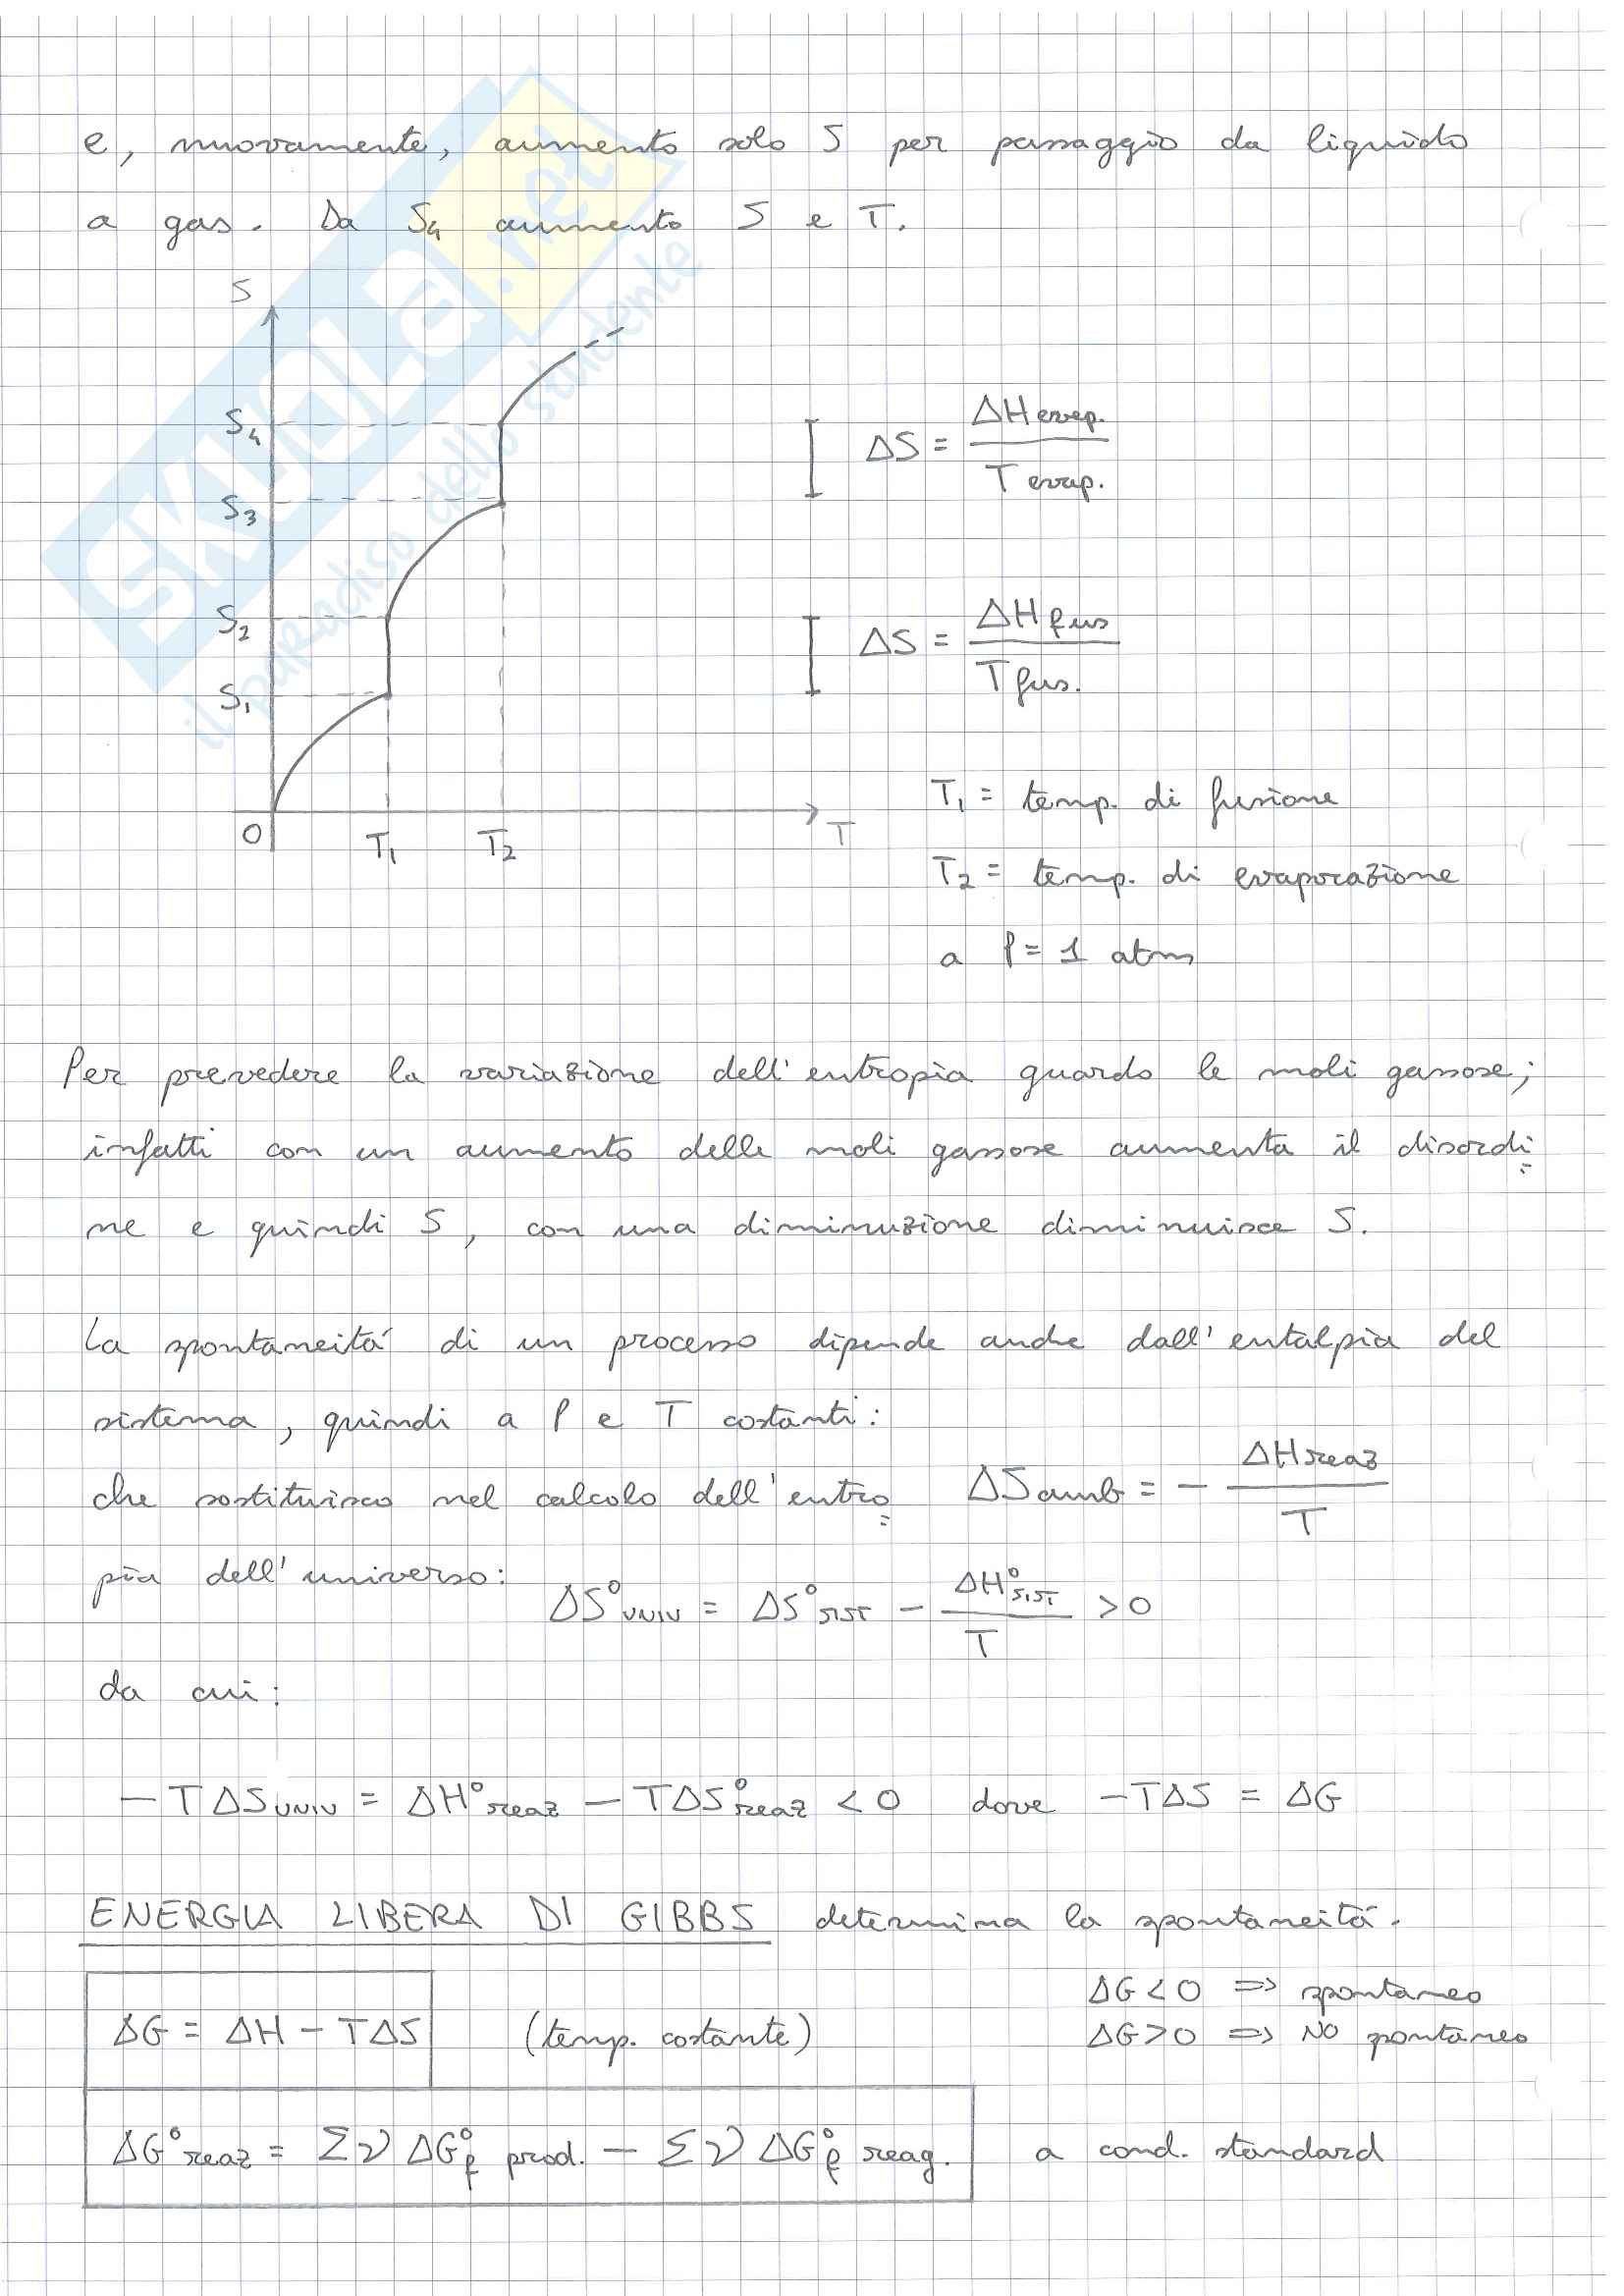 e, nuovamente, aumento solo S per passaggio da liquido
a gas. Da S₄ aumento S e T.
S
S₄
S₃
S₂
S₁
0
T₁
T₂
T
ΔS = ΔH evap. / T evap.
ΔS = ΔH fus / T fus.
T₁ = temp. di fusione
T₂ = temp. di evaporazione
a P = 1 atm
Per prevedere la variazione dell'entropia guardo le moli gassose;
infatti con un aumento delle moli gassose aumenta il disordi=
ne e quindi S, con una diminuzione diminuisce S.
La spontaneitá di un processo dipende anche dall'entalpia del
sistema, quindi a P e T costanti:
ΔSamb = - ΔHreaz / T
che sostituisco nel calcolo dell'entro=
pia dell'universo:
ΔS°UNIV = ΔS°SIST - ΔH°SIST / T > 0
da cui:
- TΔSUNIV = ΔH°reaz - TΔS°reaz < 0 dove -TΔS = ΔG
ENERGIA LIBERA DI GIBBS determina la spontaneitá.
ΔG < 0 => spontaneo
ΔG = ΔH - TΔS (temp. costante)
ΔG > 0 => NO spontaneo
ΔG°reaz = Σν ΔG°f prod. - Σν ΔG°f reag. a cond. standard
SKUOLA.net
il paradiso dello studente